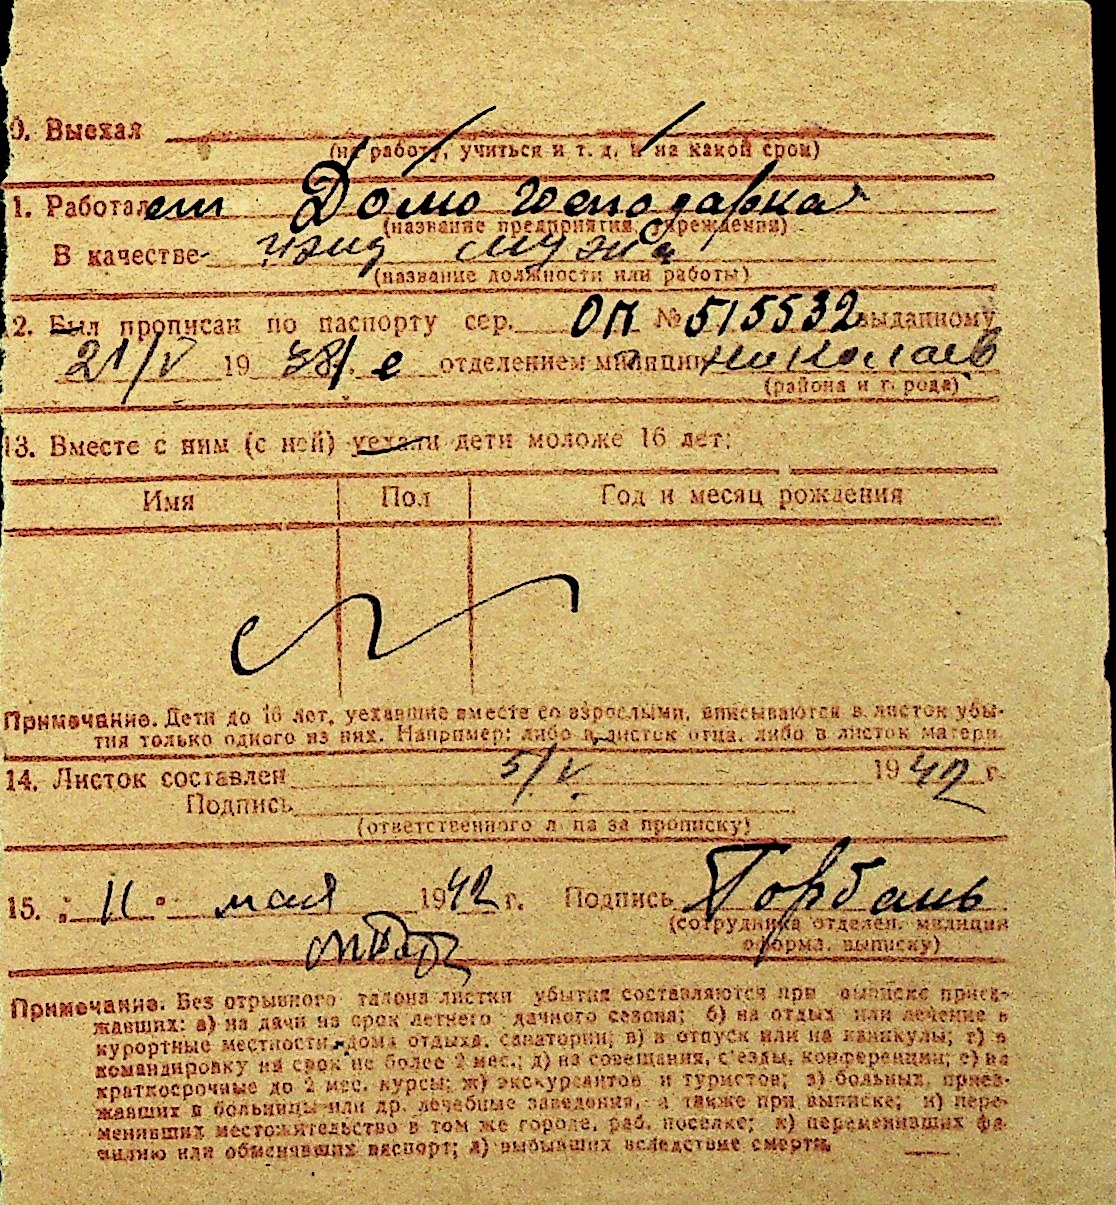 0. Выехал
(на работу, учиться и т. д. и на какой срок)
1. Работает Домогосподарка
(название предприятия, учреждения)
В качестве ижд мужа
(название должности или работы)
2. Был прописан по паспорту сер. ОП № 515532 выданному
21/V 19 38 г. е отделением милиции Николаев
(района и города)
13. Вместе с ним (с ней) уехали дети моложе 16 лет:
Имя Пол Год и месяц рождения
Примечание. Дети до 16 лет, уехавшие вместе со взрослыми, вписываются в листок убы-
тия только одного из них. Например: либо в листок отца, либо в листок матери.
14. Листок составлен 5/V. 1942 г.
Подпись
(ответственного лица за прописку)
15. "11" мая 1942 г. Подпись Горбань
(сотрудника отделен. милиции
оформл. выписку)
Примечание. Без отрывного талона листки убытия составляются при выписке приез-
жавших: а) на дачи на срок летнего дачного сезона; б) на отдых или лечение в
курортные местности, дома отдыха, санатории; в) в отпуск или на каникулы; г) в
командировку на срок не более 2 мес.; д) на совещания, с'езды, конференции; е) на
краткосрочные до 2 мес. курсы; ж) экскурсантов и туристов; з) больных, приез-
жавших в больницы или др. лечебные заведения, а также при выписке; и) пере-
менивших местожительство в том же городе, раб. поселке; к) переменивших фа-
милию или обменявших паспорт; л) выбывших вследствие смерти.